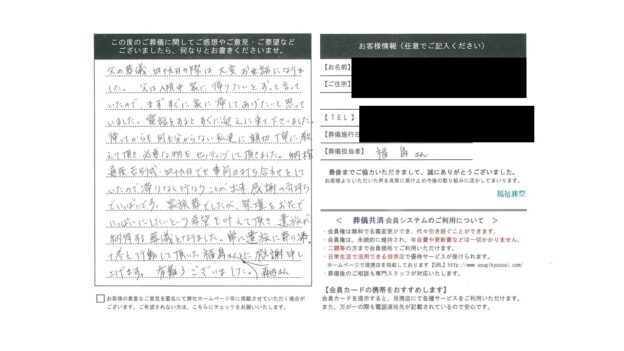 この度のご葬儀に関してご感想やご意見・ご要望など
ございましたら、何なりとお書きくださいませ。
父の葬儀、四十九日の際は大変お世話になりま
した。父は入院中家に帰りたいとずっと言って
いたので、まずすぐに家に帰してあげたいと思って
いました。電話をするとすぐに迎えに来て下さいました。
帰ってからも何も分からない私達に親切、丁寧に教え
て頂き必要な物をセッティングして頂きました。納棺
通夜告別式、四十九日でも事前の打ち合わせをして
いたので滞りなく行なうことが出来、感謝の気持ち
でいっぱいです。家族葬でしたが、祭壇をお花で
いっぱいにしたいという希望を叶えて頂き、遺族が
納得する葬儀となりました。常に遺族に寄り添っ
て下さり行動して頂いた福島さんに感謝申し
上げます。有難うございました。
お客様の貴重なご意見を匿名にて弊社ホームページ等に掲載させていただく場合が
ございます。ご希望されない方は、こちらにチェックをお願いいたします。
お客様情報（任意でご記入ください）
【お名前】
【ご住所】
【ＴＥＬ】
【葬儀施行日】
【葬儀担当者】 福島さん
最後までご協力いただきまして、誠にありがとうございました。
お客様よりいただいた声を真摯に受け止め今後の取り組みに活かしてまいります。
福祉葬祭
＜ 葬儀共済会員システムのご利用について ＞
・会員権は無料で名義変更ができ、代々引き継ぐことができます。
・会員権は、永続的に維持され、年会費や更新費などは一切かかりません。
・二親等の方まで会員価格でご利用いただけます。
・日常生活で活用できる提携店で優待サービスが受けられます。
ホームページで提携店を掲載しております【URL】http://www.sougikyousai.com/
・葬儀後のご相談も専門スタッフが対応いたします。
【会員カードの携帯をおすすめします】
会員カードを提示すると、提携店にて各種サービスをご利用いただけます。
また、万が一の際も電話連絡先が記載されているので安心です。